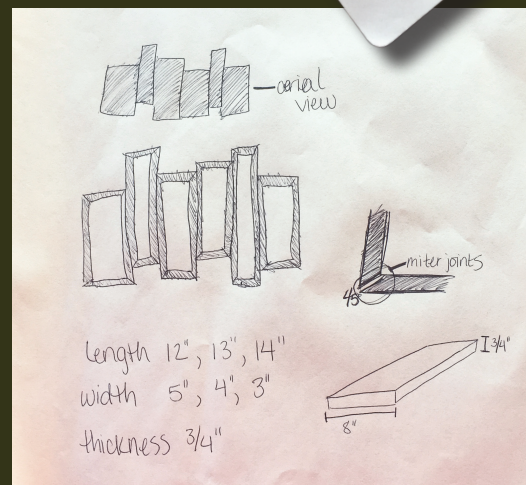 aerial
view
miter joints
45
length 12", 13", 14"
width 5", 4", 3"
thickness 3/4"
3/4"
8"